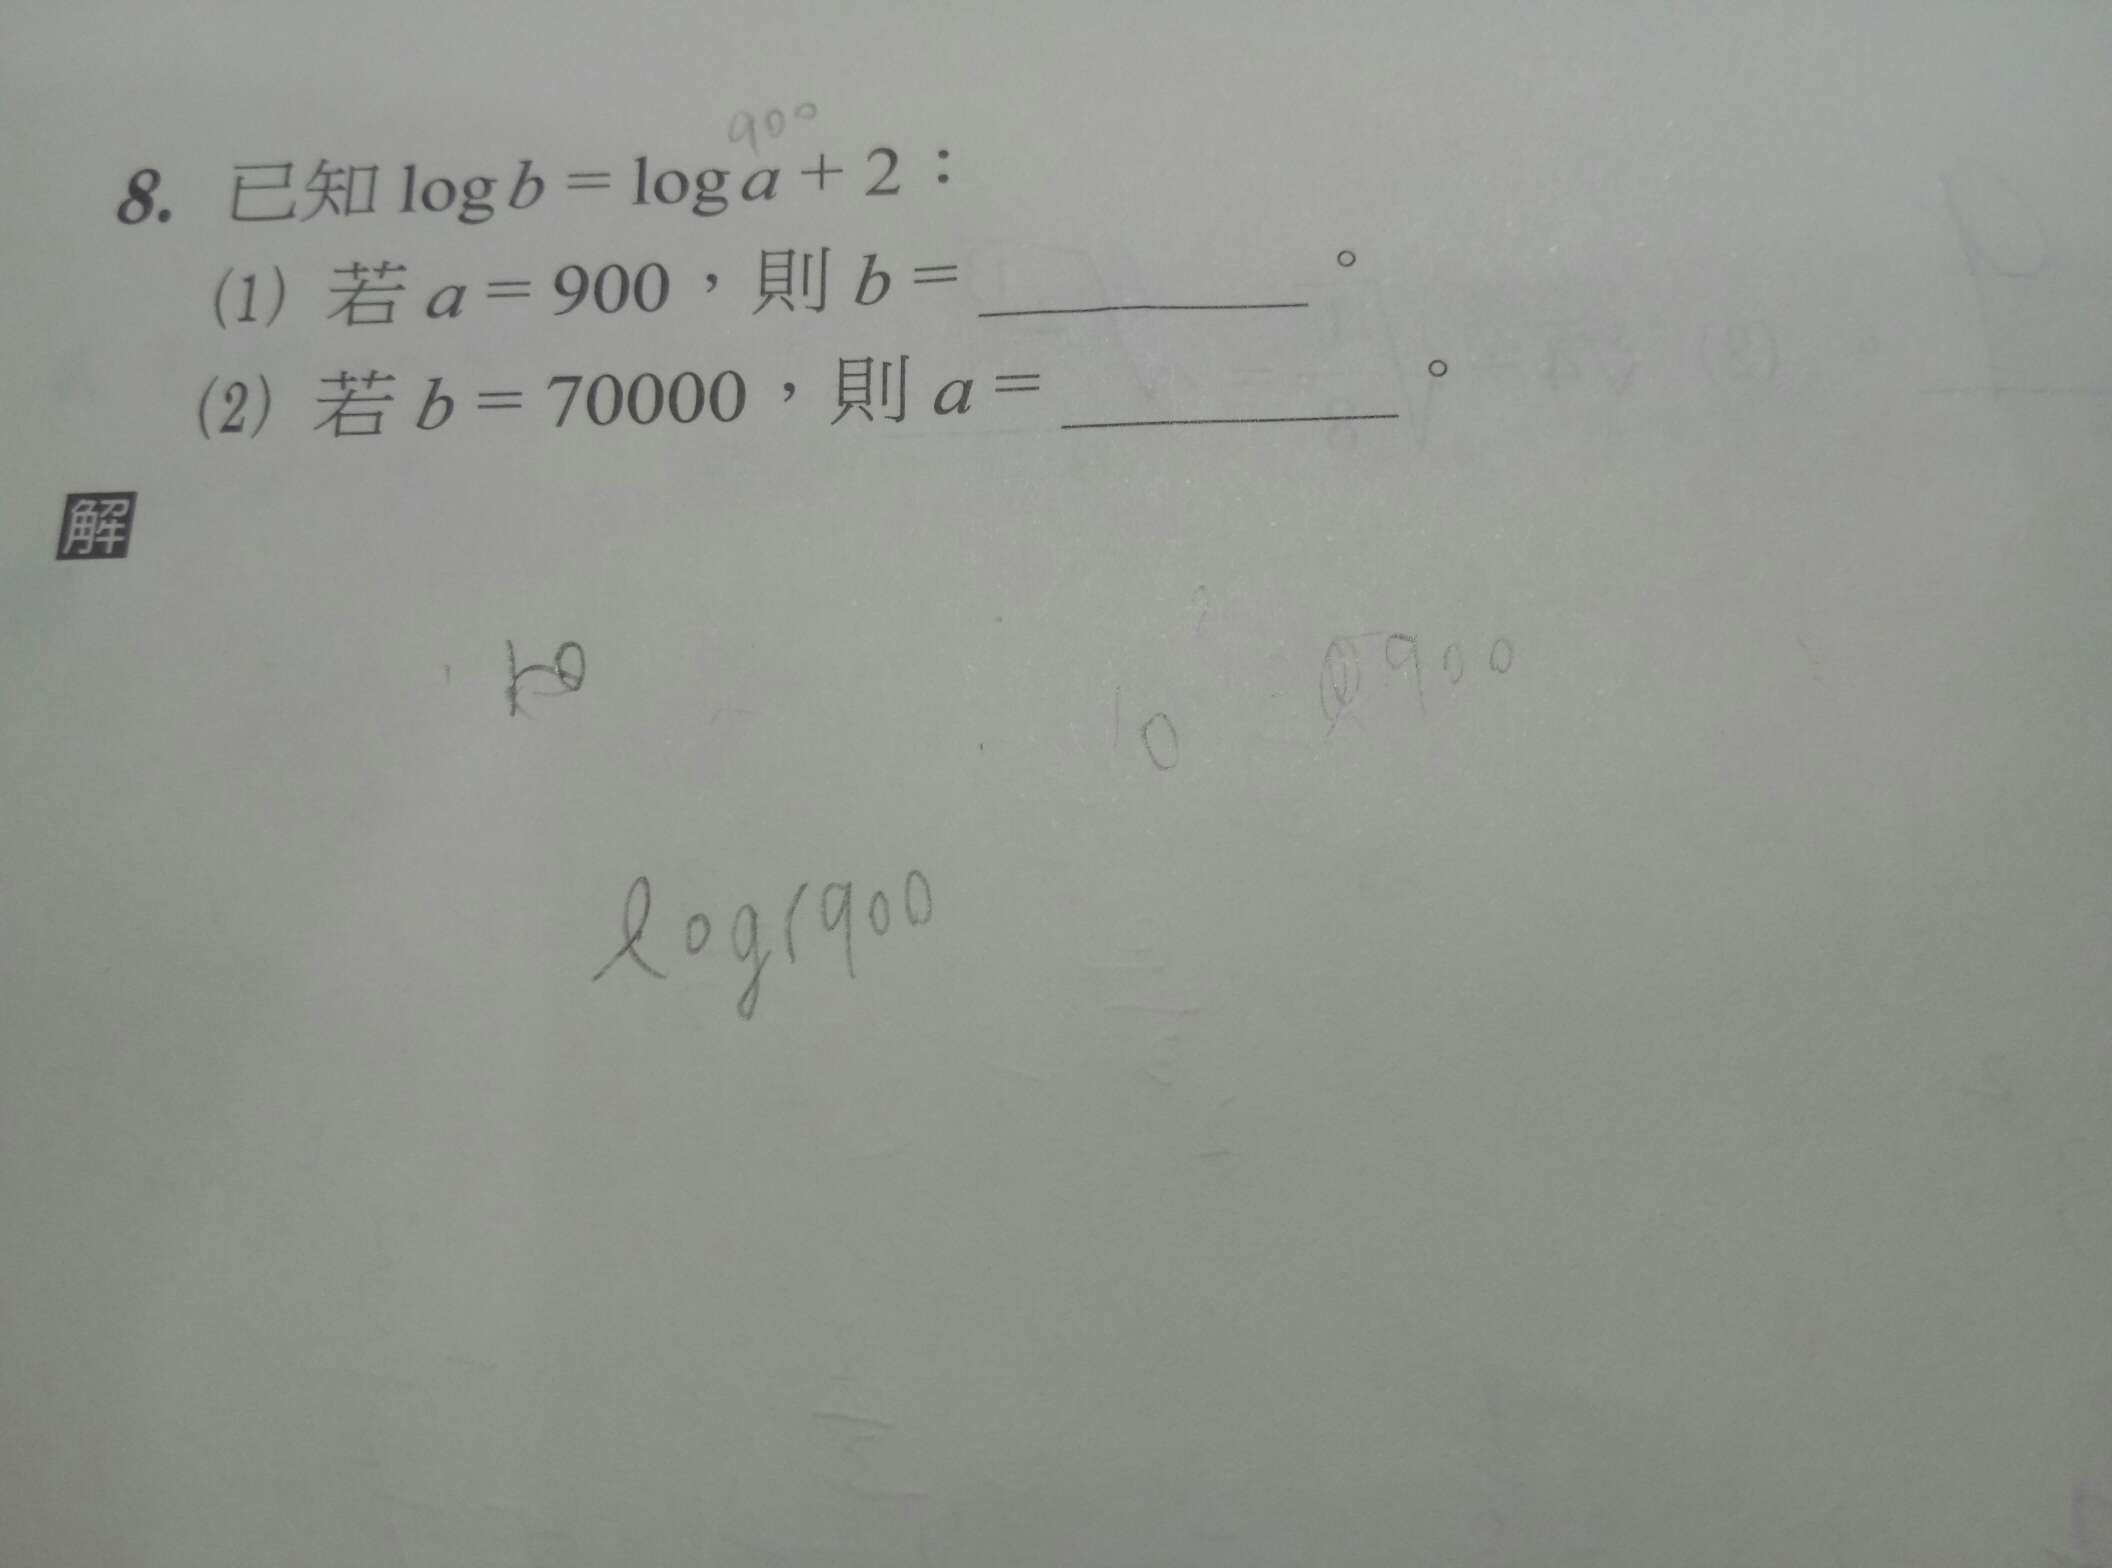 900
8. 已知 log b = log a + 2：
(1) 若 a = 900，則 b = ________。
(2) 若 b = 70000，則 a = ________。
解
10 900
log(900